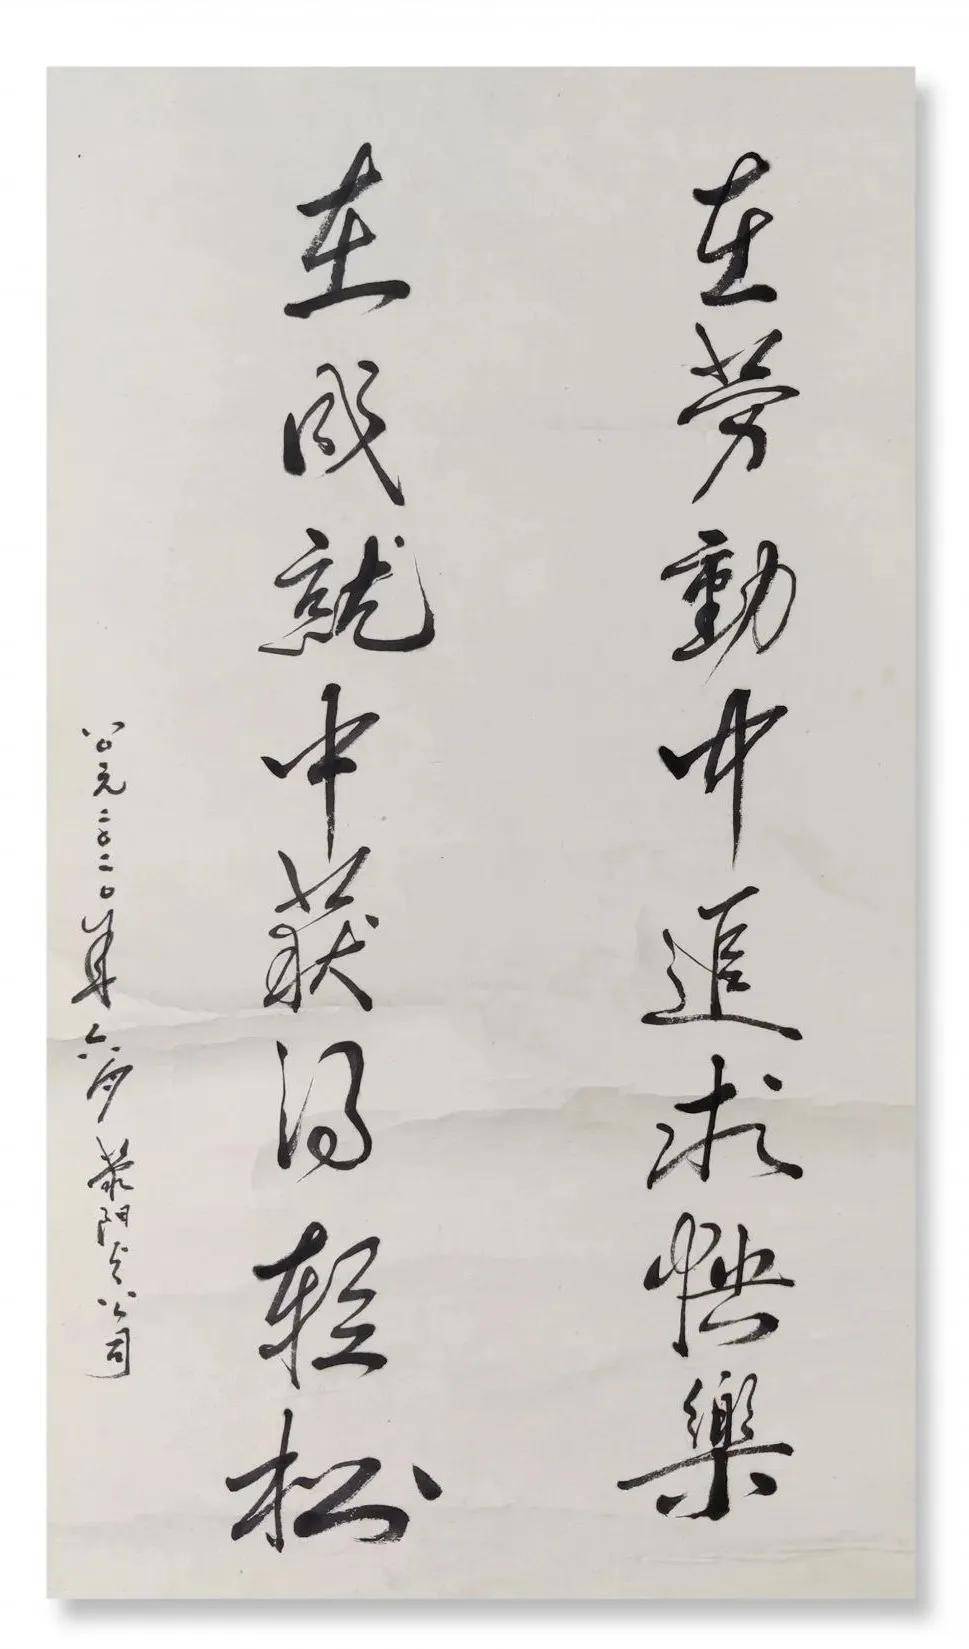 在劳動中追求快樂
在成就中获得轻松
公元二〇二〇年六月 荥阳 公司